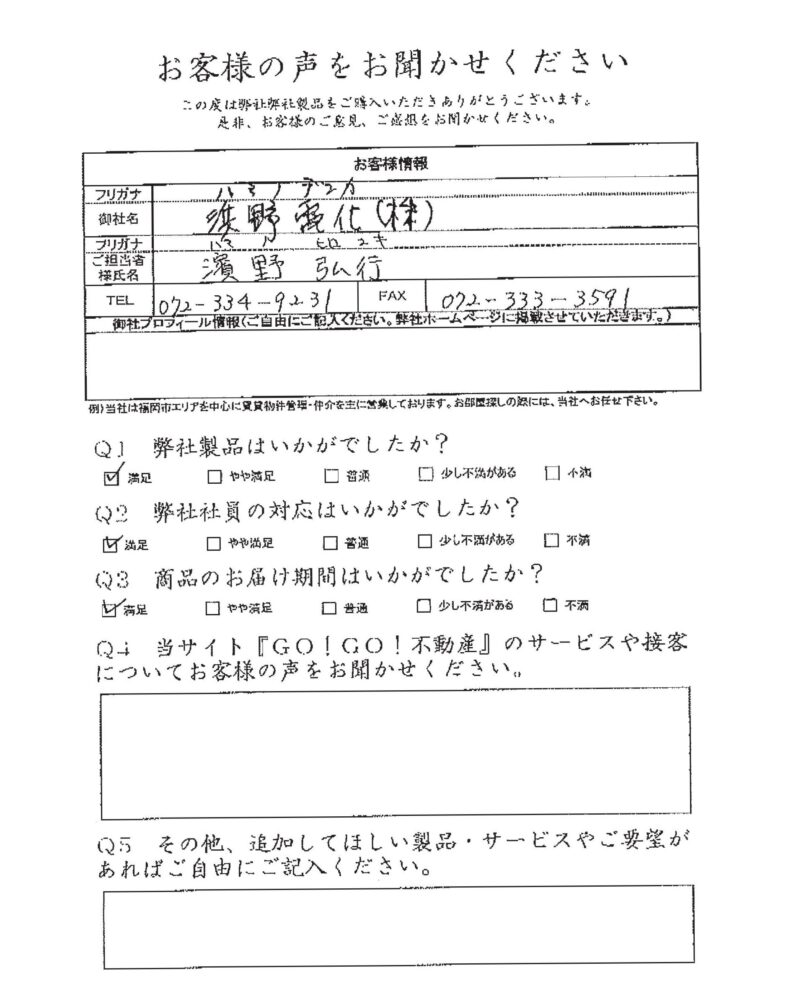 お客様の声をお聞かせください
この度は弊社弊社製品をご購入いただきありがとうございます。
是非、お客様のご意見、ご感想をお聞かせください。
お客様情報
フリガナ ハマノデンカ
御社名 濱野電化(株)
フリガナ ハマノ ヒロユキ
ご担当者様氏名 濱野 弘行
TEL 072-334-9231 FAX 072-333-3591
御社プロフィール情報(ご自由にご記入ください。弊社ホームページに掲載させていただきます。)
例)当社は福岡市エリアを中心に賃貸物件管理・仲介を主に営業しております。お部屋探しの際には、当社へお任せ下さい。
Q1 弊社製品はいかがでしたか?
☑満足 □やや満足 □普通 □少し不満がある □不満
Q2 弊社社員の対応はいかがでしたか?
☑満足 □やや満足 □普通 □少し不満がある □不満
Q3 商品のお届け期間はいかがでしたか?
☑満足 □やや満足 □普通 □少し不満がある □不満
Q4 当サイト『GO!GO!不動産』のサービスや接客
についてお客様の声をお聞かせください。
Q5 その他、追加してほしい製品・サービスやご要望が
あればご自由にご記入ください。